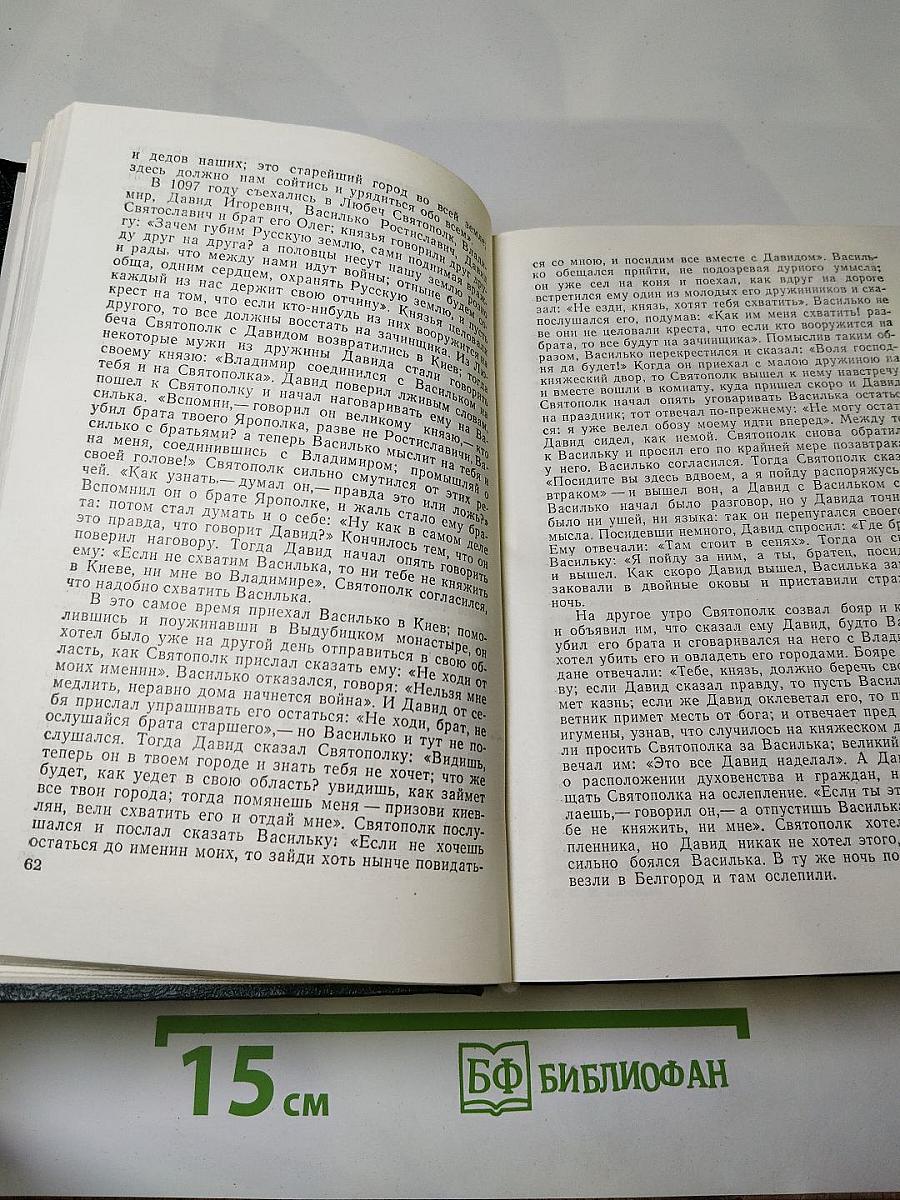 и дедов наших; это старейший город во всей земле;
здесь должно нам сойтись и урядиться обо всем».
В 1097 году съехались в Любеч Святополк, Влади-
мир, Давид Игоревич, Василько Ростиславич, Давид
Святославич и брат его Олег; князья говорили друг дру-
гу: «Зачем губим Русскую землю, сами поднимая враж-
ду друг на друга? а половцы несут нашу землю розно
и рады, что между нами идут войны; отныне будем со-
обща, одним сердцем, охранять Русскую землю, и пусть
каждый из нас держит свою отчину». Князья целовали
крест на том, что если кто-нибудь из них вооружится на
другого, то все должны восстать на зачинщика. Из Лю-
беча Святополк с Давидом возвратились в Киев; тогда
некоторые мужи из дружины Давида стали говорить
своему князю: «Владимир соединился с Васильком на
тебя и на Святополка». Давид поверил лживым словам,
пошел к Святополку и начал наговаривать ему на Ва-
силька. «Вспомни,— говорил он великому князю,— кто
убил брата твоего Ярополка, разве не Ростиславичи, Ва-
силько с братьями? а теперь Василько мыслит на тебя и
на меня, соединившись с Владимиром; промышляй о
своей голове!» Святополк сильно смутился от этих ре-
чей. «Как узнать,— думал он,— правда это или ложь?»
Вспомнил он о брате Ярополке, и жаль стало ему бра-
та: потом стал думать и о себе: «Ну как в самом деле
это правда, что говорит Давид?» Кончилось тем, что он
поверил наговору. Тогда Давид начал опять говорить
ему: «Если не схватим Василька, то ни тебе не княжить
в Киеве, ни мне во Владимире». Святополк согласился,
что надобно схватить Василька.
В это самое время приехал Василько в Киев; помо-
лившись и поужинавши в Выдубицком монастыре, он
хотел было уже на другой день отправиться в свою об-
ласть, как Святополк прислал сказать ему: «Не ходи от
моих именин». Василько отказался, говоря: «Нельзя мне
медлить, неравно дома начнется война». И Давид от се-
бя прислал упрашивать его остаться: «Не ходи, брат, не
ослушайся брата старшего»,— но Василько и тут не по-
слушался. Тогда Давид сказал Святополку: «Видишь,
теперь он в твоем городе и знать тебя не хочет; что же
будет, как уедет в свою область? увидишь, как займет
все твои города; тогда помянешь меня — призови киев-
лян, вели схватить его и отдай мне». Святополк послу-
шался и послал сказать Васильку; «Если не хочешь
остаться до именин моих, то зайди хоть нынче повидать-
62
ся со мною, и посидим все вместе с Давидом». Василь-
ко обещался прийти, не подозревая дурного умысла;
он уже сел на коня и поехал, как вдруг на дороге
встретился ему один из молодых его дружинников и ска-
зал: «Не езди, князь, хотят тебя схватить». Василько не
послушался его, подумав: «Как им меня схватить! раз-
ве они не целовали креста, что если кто вооружится на
брата, то все будут на зачинщика». Помыслив таким об-
разом, Василько перекрестился и сказал: «Воля господ-
ня да будет!» Когда он приехал с малою дружиною на
княжеский двор, то Святополк вышел к нему навстречу
и вместе вошли в комнату, куда пришел скоро и Давид
Святополк начал опять уговаривать Василька остатьс
на праздник; тот отвечал по-прежнему: «Не могу остат
ся: я уже велел обозу моему идти вперед». Между т
Давид сидел, как немой. Святополк снова обратил
к Васильку и просил его по крайней мере позавтрака
у него. Василько согласился. Тогда Святополк сказ
«Посидите вы здесь вдвоем, а я пойду распоряжусь
втраком» — и вышел вон, а Давид с Васильком с
Василько начал было разговор, но у Давида точн
было ни ушей, ни языка: так он перепугался своего
мысла. Посидевши немного, Давид спросил: «Где бр
Ему отвечали: «Там стоит в сенях». Тогда он ск
Васильку: «Я пойду за ним, а ты, братец, посид
и вышел. Как скоро Давид вышел, Василька за
заковали в двойные оковы и приставили стра
ночь.
На другое утро Святополк созвал бояр и к
и объявил им, что сказал ему Давид, будто Ва
убил его брата и сговаривался на него с Влади
хотел убить его и овладеть его городами. Бояре
дане отвечали: «Тебе, князь, должно беречь сво
ву; если Давид сказал правду, то пусть Васил
мет казнь; если же Давид оклеветал его, то п
ветник примет месть от бога; и отвечает пред
игумены, узнав, что случилось на княжеском д
ли просить Святополка за Василька; великий
вечал им: «Это все Давид наделал». А Дав
о расположении духовенства и граждан, н
щать Святополка на ослепление. «Если ты эт
лаешь,— говорил он,— а отпустишь Василька
бе не княжить, ни мне». Святополк хотел
пленника, но Давид никак не хотел этого,
сильно боялся Василька. В ту же ночь по
везли в Белгород и там ослепили.
15 см
БФ БИБЛИОФАН